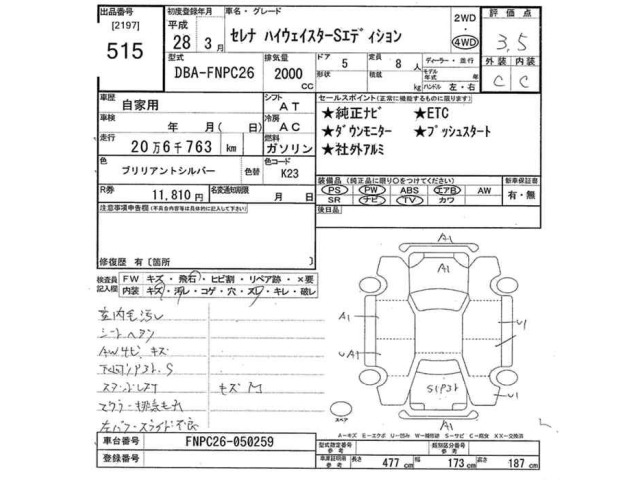 出品番号 初度登録年月 車名・グレード 2WD 評価点
[2197] 平成
515 28年 3月 セレナ ハイウェイスターSエディション 4WD 3.5
型式 排気量 ドア 5 定員 8人 ディーラー・並行 外装 内装
DBA-FNPC26 2000 cc 形状 積載 kg モデル年式 年 ハンドル 左・右 C C
車歴 自家用 シフト AT セールスポイント(正常に機能するものに限ります)
車検 年 月(日) 冷房 AC ★純正ナビ ★ETC
走行 20万6千763 km 燃料 ガソリン ★ダウンモニター ★プッシュスタート
★社外アルミ
色 ブリリアントシルバー 色替 色コード K23
装備品(純正品に限り○をつけてください) 新車保証書
PS PW ABS エアB AW 有・無
SR ナビ TV カワ
R券 11,810円 名変通知期限 月 日
後日品
注意事項申告欄(不具合内容等は具体的に記入して下さい)
修復歴 有[箇所
検査員記入欄 FW キズ・飛石・ヒビ割・リペア跡・×要
内装 キズ・汚レ・コゲ・穴・スレ・キレ・破レ
室内毛汚し
AWサビ キズ
キズ
A1
A1
A1 U1
UA1
S1P3
U1
A1
スペア
A-キズ E-エクボ U-凹み W-補修跡 S-サビ C-腐食 XX-交換済
車台番号 FNPC26-050259 型式指定番号 参考 類別区分番号 参考
登録番号 車庫証明用 参考 長さ 477cm 幅 173cm 高さ 187cm